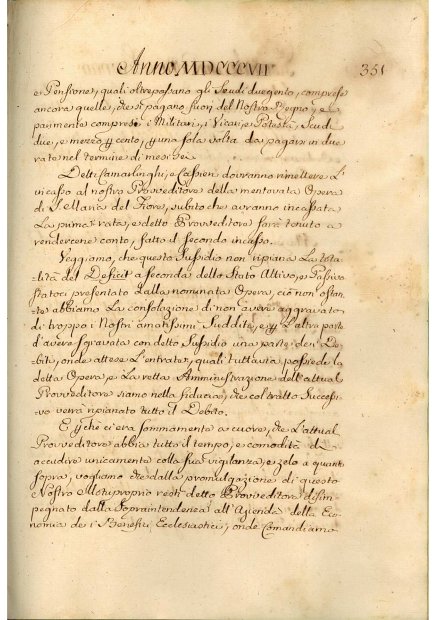 Anno MDCCCVII 351
e Pensioni, quali oltrepassano gli Scudi dugento, comprese
ancora quelle, che si pagano fuori del Nostro Regno, e
parimente compresi i Militari, i Vicari, e Potestà, Scudi
due, e mezzo p cento, p una sola volta da pagarsi in due
rate nel termine di mesi sei.
Detti Camarlinghi, e Cassieri dovranno rimettere l'
incasso al nostro Provveditore della mentovata Opera
di S. Maria del Fiore, subito che avranno incassata
la prima rata, e detto Provveditore sarà tenuto a
rendercene conto, fatto il secondo incasso.
Veggiamo, che questo Sussidio non ripiana la tota
lità del Deficit a seconda dello Stato Attivo, e Passivo
statoci presentato dalla nominata Opera, ciò non ostan
te abbiamo la consolazione di non avere aggravato
di troppo i Nostri amatissimi Sudditi, e p l'altra parte
d'avere sgravata con detto Sussidio una parte dei De
biti, onde attese l'entrate, quali tuttavia possiede la
detta Opera, e la retta Amministrazione dell'attual
Provveditore siamo nella fiducia, che col tratto successi
vo verrà ripianato tutto il Debito.
E p che ci era sommamente a cuore, che l'attual
Provveditore abbia tutto il tempo, e comodità di
accudire unicamente colla sua vigilanza, e zelo a quanto
sopra, vogliamo che dalla promulgazione di questo
Nostro Motuproprio resti detto Provveditore disim
pegnato dalla Soprintendenza all'Azienda della Eco
nomia de i Benefizi Ecclesiastici, onde Comandiamo